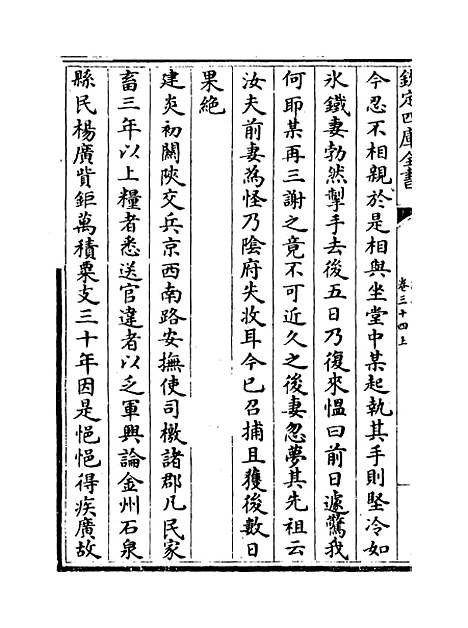 欽定四庫全書
卷三十四上
今忍不相親於是相與坐堂中某起執其手則堅冷如
氷鐵妻勃然掣手去後五日乃復來愠曰前日遽驚我
何耶某再三謝之竟不可近久之後妻忽夢其先祖云
汝夫前妻為怪乃陰府失收耳今已召捕且獲後數日
果絶
建炎初關陜交兵京西南路安撫使司檄諸郡凡民家
畜三年以上糧者悉送官違者以乏軍興論金州石泉
縣民楊廣貲鉅萬積粟支三十年因是悒悒得疾廣故